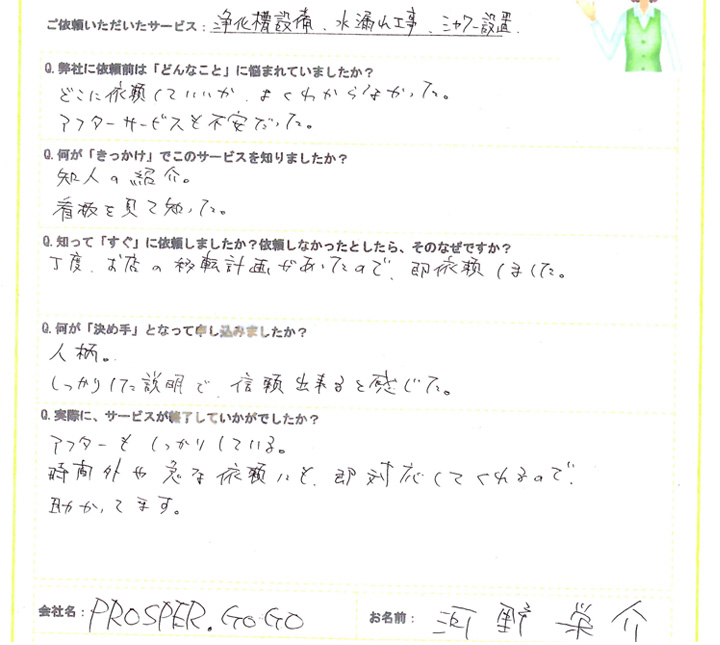 ご依頼いただいたサービス：浄化槽設備、水漏れ工事、シャワー設置.
Q. 弊社に依頼前は「どんなこと」に悩まれていましたか？
どこに依頼していいか、よくわからなかった。
アフターサービスも不安だった。
Q. 何が「きっかけ」でこのサービスを知りましたか？
知人の紹介。
看板を見て知った。
Q. 知って「すぐ」に依頼しましたか？依頼しなかったとしたら、そのなぜですか？
丁度、お店の移転計画があったので、即依頼しました。
Q. 何が「決め手」となって申し込みましたか？
人柄。
しっかりした説明で、信頼出来ると感じた。
Q. 実際に、サービスが終了していかがでしたか？
アフターもしっかりしている。
時間外や急な依頼にも、即対応してくれるので、
助かってます。
会社名：PROSPER.GOGO
お名前：河野 栄介